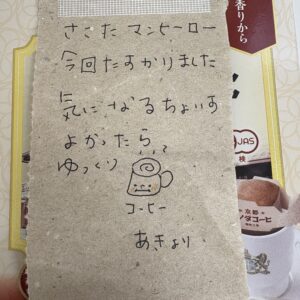 香りから
さこたマンヒーロー
今回たすかりました
気になるちょいす
よかったら、、、
ゆっくり
コーヒー
あきより
JAS
検
京都